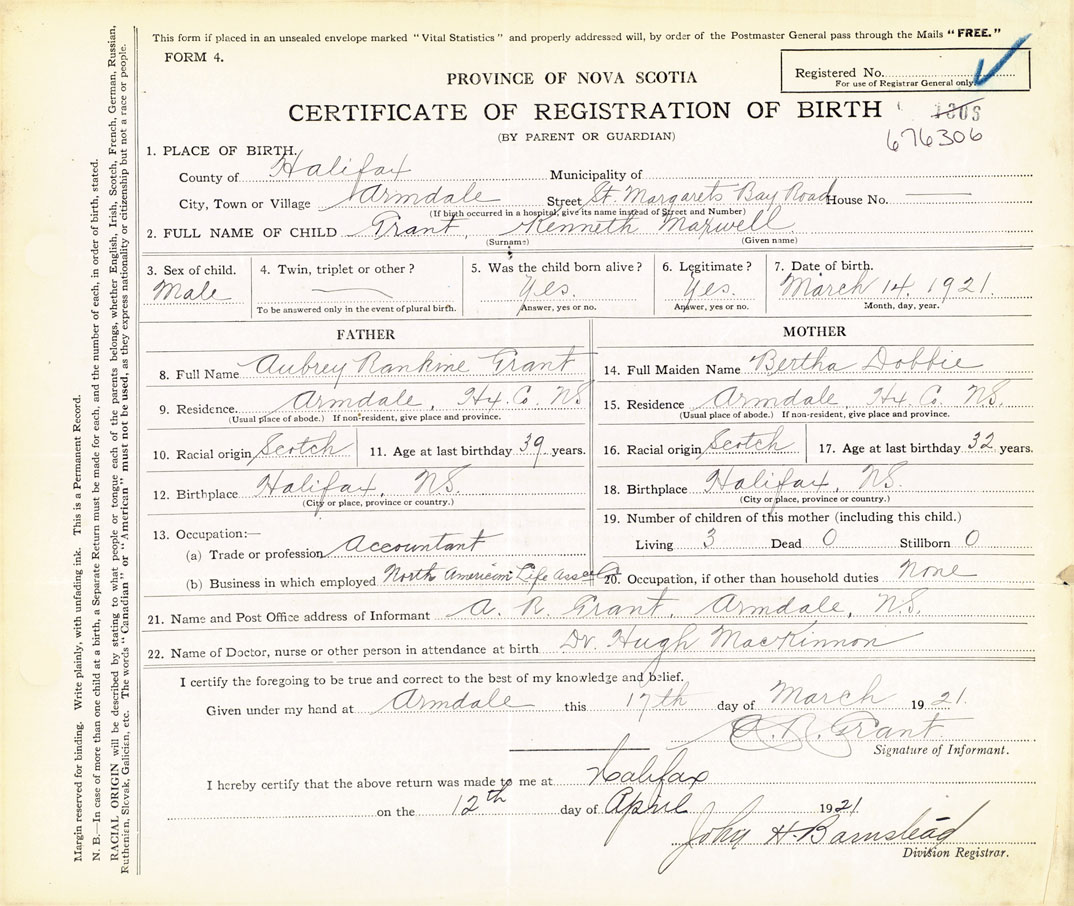 This form if placed in an unsealed envelope marked "Vital Statistics" and properly addressed will, by order of the Postmaster General pass through the Mails "FREE."
FORM 4.
Registered No.
For use of Registrar General only
PROVINCE OF NOVA SCOTIA
CERTIFICATE OF REGISTRATION OF BIRTH
(BY PARENT OR GUARDIAN)
676306
1. PLACE OF BIRTH.
County of Halifax Municipality of
City, Town or Village Armdale Street St. Margarets Bay Road House No.
(If birth occurred in a hospital, give its name instead of Street and Number)
2. FULL NAME OF CHILD Grant, Kenneth Maxwell
(Surname) (Given name)
3. Sex of child. Male
4. Twin, triplet or other?
To be answered only in the event of plural birth.
5. Was the child born alive? Yes.
Answer, yes or no.
6. Legitimate? Yes.
Answer, yes or no.
7. Date of birth. March 14. 1921.
Month, day, year.
FATHER
8. Full Name Aubrey Rankine Grant
9. Residence. Armdale, Hx. Co. NS
(Usual place of abode.) If non-resident, give place and province.
10. Racial origin Scotch
11. Age at last birthday 39 years.
12. Birthplace Halifax, NS.
(City or place, province or country.)
13. Occupation:—
(a) Trade or profession Accountant
(b) Business in which employed North American Life Assce Co
MOTHER
14. Full Maiden Name Bertha Dobbie
15. Residence Armdale, Hx. Co. NS.
(Usual place of abode.) If non-resident, give place and province.
16. Racial origin Scotch
17. Age at last birthday 32 years.
18. Birthplace Halifax, NS.
(City or place, province or country.)
19. Number of children of this mother (including this child.)
Living 3 Dead 0 Stillborn 0
20. Occupation, if other than household duties None
21. Name and Post Office address of Informant A. R. Grant, Armdale, N.S.
22. Name of Doctor, nurse or other person in attendance at birth Dr. Hugh MacKinnon
I certify the foregoing to be true and correct to the best of my knowledge and belief.
Given under my hand at Armdale this 17th day of March 1921.
A. R. Grant
Signature of Informant.
I hereby certify that the above return was made to me at Halifax
on the 12th day of April 1921
John H. Barnstead
Division Registrar.
Margin reserved for binding. Write plainly, with unfading ink. This is a Permanent Record.
N. B.—In case of more than one child at a birth, a Separate Return must be made for each, and the number of each, in order of birth, stated.
RACIAL ORIGIN will be described by stating to what people or tongue each of the parents belongs, whether English, Irish, Scotch, French, German, Russian,
Ruthenian, Slovak, Galician, etc. The words "Canadian" or "American" must not be used, as they express nationality or citizenship but not a race or people.